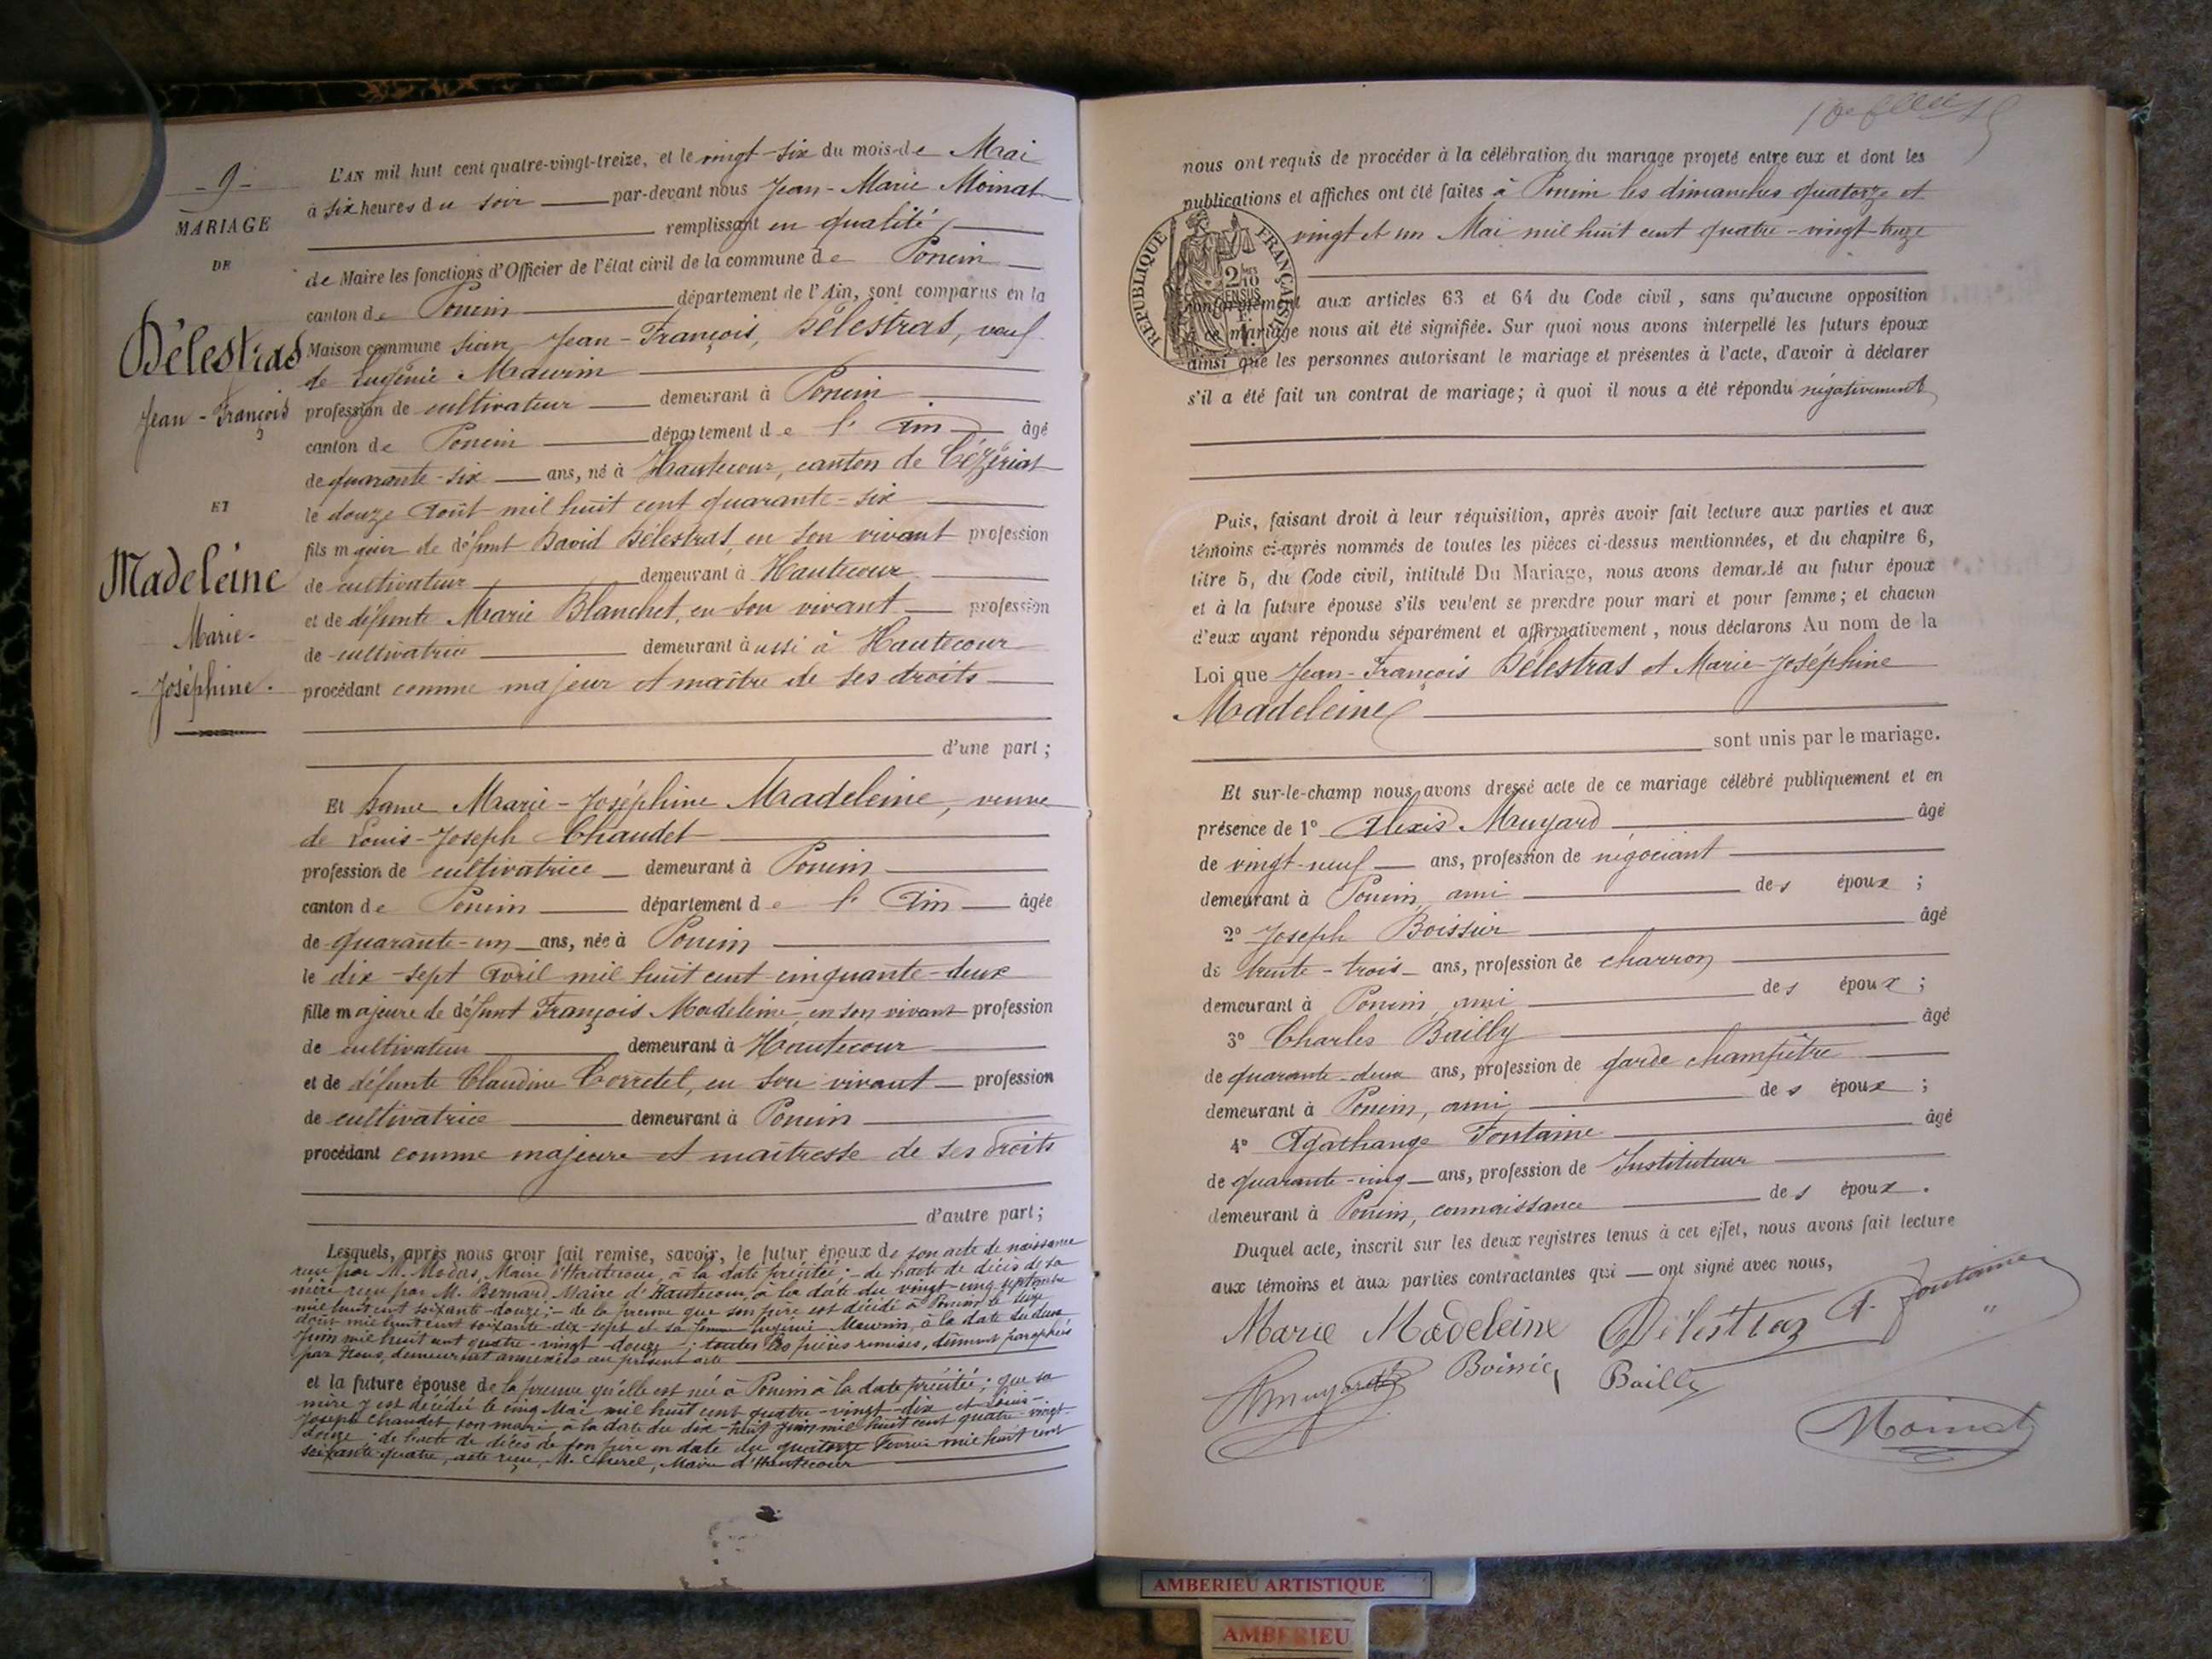 - 9 -
MARIAGE
DE
Délestras
Jean-François
ET
Madeleine
Marie-
Joséphine.
L'AN mil huit cent quatre-vingt-treize, et le vingt-six du mois de Mai
à six heures du soir par-devant nous Jean-Marie Moinat
remplissant en qualité
de Maire les fonctions d'Officier de l'état civil de la commune de Poncin
canton de Poncin département de l'Ain, sont comparus en la
Maison commune Sieur Jean-François, Délestras, veuf
de Eugénie Mawrin
profession de cultivateur demeurant à Poncin
canton de Poncin département de l'Ain âgé
de quarante-six ans, né à Hautecour, canton de Cézériat
le douze Août mil huit cent quarante-six
fils majeur de défunt David Délestras, en son vivant profession
de cultivateur demeurant à Hautecour
et de défunte Marie Blanchet, en son vivant profession
de cultivatrice demeurant aussi à Hautecour
procédant comme majeur et maître de ses droits
d'une part;
Et Dame Marie-Joséphine Madeleine, veuve
de Louis-Joseph Chaudet
profession de cultivatrice demeurant à Poncin
canton de Poncin département de l'Ain âgée
de quarante-un ans, née à Poncin
le dix-sept Avril mil huit cent cinquante-deux
fille majeure de défunt François Madeleine, en son vivant profession
de cultivateur demeurant à Hautecour
et de défunte Claudine Corretel, en son vivant profession
de cultivatrice demeurant à Poncin
procédant comme majeure et maîtresse de ses droits
d'autre part;
Lesquels, après nous avoir fait remise, savoir, le futur époux de son acte de naissance
reçu par M. Modas, Maire d'Hautecour, à la date précitée; - de l'acte de décès de sa
mère reçu par M. Bernard, Maire d'Hautecour, à la date du vingt-cinq septembre
mil huit cent soixante-douze; - de la preuve que son père est décédé à Poncin le
août mil huit cent soixante-dix-sept et sa femme Eugénie Mawrin, à la date du deux
Juin mil huit cent quatre-vingt-douze; toutes les pièces remises, dûment paraphées
par Nous, demeurant annexées au présent acte
et la future épouse de la preuve qu'elle est née à Poncin à la date précitée; que sa
mère y est décédée le cinq Mai mil huit cent quatre-vingt-dix et Louis-
Joseph Chaudet, son mari à la date du dix-huit Juin mil huit cent quatre-vingt-
douze; de l'acte de décès de son père en date du quatorze Février mil huit cent
soixante-quatre, acte reçu, M. Maire d'Hautecour
nous ont requis de procéder à la célébration du mariage projeté entre eux et dont les
publications et affiches ont été faites à Poncin les dimanches quatorze et
vingt et un Mai mil huit cent quatre-vingt-treize
RÉPUBLIQUE FRANÇAISE
conformément aux articles 63 et 64 du Code civil, sans qu'aucune opposition
à ce mariage nous ait été signifiée. Sur quoi nous avons interpellé les futurs époux
ainsi que les personnes autorisant le mariage et présentes à l'acte, d'avoir à déclarer
s'il a été fait un contrat de mariage; à quoi il nous a été répondu négativement
Puis, faisant droit à leur réquisition, après avoir fait lecture aux parties et aux
témoins ci-après nommés de toutes les pièces ci-dessus mentionnées, et du chapitre 6,
titre 5, du Code civil, intitulé Du Mariage, nous avons demandé au futur époux
et à la future épouse s'ils veulent se prendre pour mari et pour femme; et chacun
d'eux ayant répondu séparément et affirmativement, nous déclarons Au nom de la
Loi que Jean-François Délestras et Marie-Joséphine
Madeleine
sont unis par le mariage.
Et sur-le-champ nous avons dressé acte de ce mariage célébré publiquement et en
présence de 1° Alexis Muyard âgé
de vingt-neuf ans, profession de négociant
demeurant à Poncin, ami des époux;
2° Joseph Boissier âgé
de trente-trois ans, profession de charron
demeurant à Poncin, ami des époux;
3° Charles Bailly âgé
de quarante-deux ans, profession de garde champêtre
demeurant à Poncin, ami des époux;
4° Agathange Fontaine âgé
de quarante-cinq ans, profession de Instituteur
demeurant à Poncin, connaissance des époux.
Duquel acte, inscrit sur les deux registres tenus à cet effet, nous avons fait lecture
aux témoins et aux parties contractantes qui ont signé avec nous,
Marie Madeleine Délestraz A. Fontaine
Amuyard Boissier Bailly
Moinat
AMBERIEU ARTISTIQUE
AMBERIEU